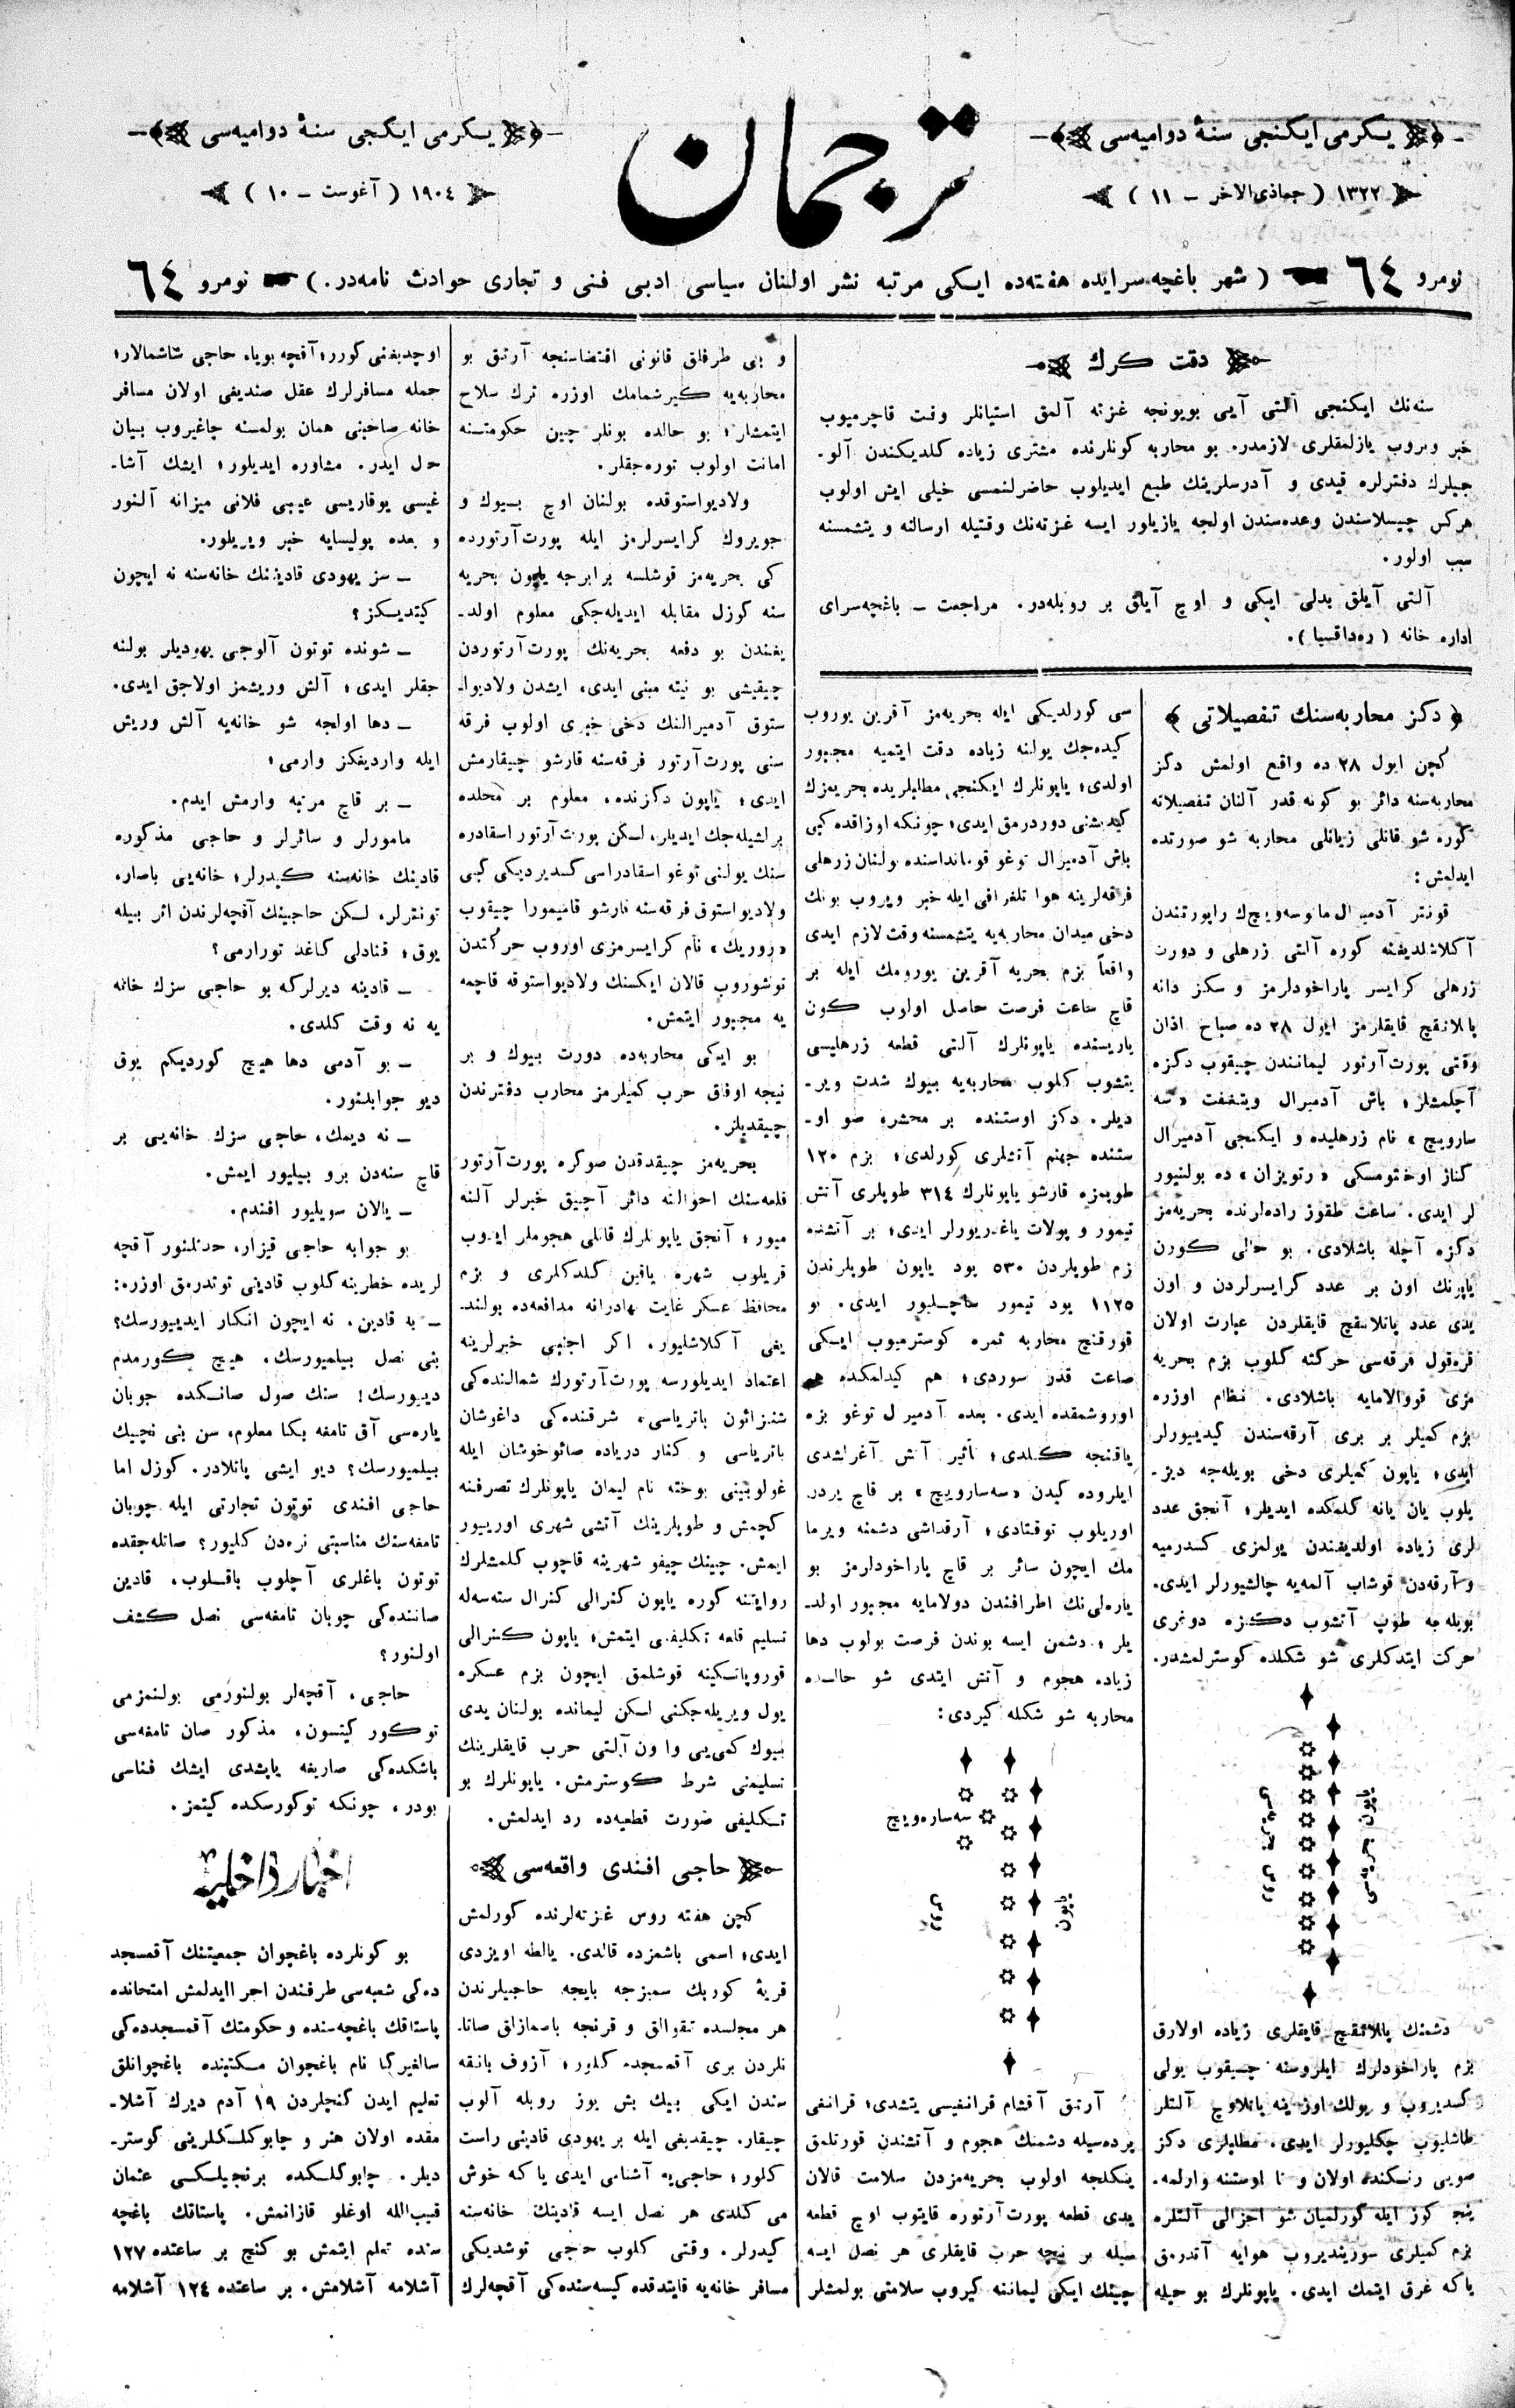 يكرمى ايكنجى سنۀ دواميه‌سى
١٣٢٢ ( جماذى‌الاخر ــ ١١ )
ترجمان
يكرمى ايكنجى سنۀ دواميه‌سى
١٩٠٤ ( آغوست ــ ١٠ )
نومرو ٦٤ ( شهر باغچه‌سرايده هفته‌ده ايكى مرتبه نشر اولنان سياسى ادبى فنى و تجارى حوادث نامه‌در. ) نومرو ٦٤
دقت كرك
سنه‌نك ايكنجى آلتى آيى بويونجه غزته آلمق استيانلر وقت قاچرميوب
خبر ويروب يازلمقلرى لازمدر. بو محاربه كونلرنده مشترى زياده كلديكندن آلو-
جيلرك دفترلره قيدى و آدرسلرينك طبع ايديلوب حاضرلنمسى خيلى ايش اولوب
هركس چيسلاسندن وعده‌سندن اولجه يازيلور ايسه غزته‌نك وقتيله ارسالنه و يتشمسنه
سبب اولور.
آلتى آيلق بدلى ايكى و اوچ آيلق بر روبله‌در. مراجعت ــ باغچه‌سراى
اداره خانه ( ره‌داقسيا ).
دكز محاربه‌سنك تفصيلاتى
كچن ايول ٢٨ ده واقع اولمش دكز
محاربه‌سنه دائر بو كونه قدر آلنان تفصيلاته
كوره شو قانلى زيانلى محاربه شو صورتده
ايدلمش:
قونتر آدميرال ماتوسه‌ويچ‌ك راپورتندن
آكلاشلديغنه كوره آلتى زرهلى و دورت
زرهلى كرايسر پاراخودلرمز و سكز دانه
پاتلانقچ قايقلرمز ايول ٢٨ ده صباح اذان
وقتى پورت‌آرتور ليمانندن چيقوب دكزه
آچلمشلر؛ باش آدميرال ويتغفت «سه
سارويچ» نام زرهليده و ايكنجى آدميرال
كناز اوختومسكى «رتويزان» ده بولنيور
لر ايدى. ساعت طقوز راده‌لرنده بحريه‌مز
دكزه آچله باشلادى. بو حالى كورن
ياپونك اون بر عدد كرايسرلردن و اون
يدى عدد پاتلانقچ قايقلردن عبارت اولان
قره‌قول فرقه‌سى حركته كلوب بزم بحريه
مزى قووالامايه باشلادى. نظام اوزره
بزم كميلر بر برى آرقه‌سندن كيدييورلر
ايدى؛ ياپون كميلرى دخى بويله‌جه ديز-
يلوب يان يانه كلمكده ايديلر؛ آنجق عدد
لرى زياده اولديغندن يولمزى كسدرميه
و آرقه‌دن قوشاب آلمه‌يه چالشيورلر ايدى.
بويله‌جه طوپ آتشوب دكزه دوغرى
حركت ايتدكلرى شو شكلده كوسترلمشدر.
روس بحريه‌سى
دشمنك پاتلانقچ قايقلرى زياده اولارق
بزم پاراخودلرك ايلروسنه چيقوب يولى
كسديروب و يولك اوزرينه پاتلاوچ آلتلر
طاشليوب چكليورلر ايدى. مطلبلرى دكز
صويى رنكنده اولان و تا اوستنه وارلمه-
ينجه كوز ايله كورلميان شو اجزالى آلتلره
بزم كميلرى سورينديروب هوايه آتدرمق
ياكه غرق ايتمك ايدى. ياپونلرك بو حيله
سى كورلديكى ايله بحريه‌مز آقرين يوروب
كيده‌جك يولنه زياده دقت ايتميه مجبور
اولدى؛ ياپونلرك ايكنجى مطلبلريده بحريمزك
كيدشنى دوردرمق ايدى؛ چونكه اوزاقده كى
باش آدميرال توغو قومانداسنده بولنان زرهلى
فرقه‌لرينه هوا تلغرافى ايله خبر ويروب بونك
دخى ميدان محاربه‌يه يتشمسنه وقت لازم ايدى
واقعاً بزم بحريه آقرين يورومك ايله بر
قاچ ساعت فرصت حاصل اولوب كون
ياريسنده ياپونلرك آلتى قطعه زرهليسى
يتشوب كلوب محاربه‌يه بيوك شدت وير-
ديلر. دكز اوستنده بر محشر، صو او-
ستنده جهنم آتشلرى كورلدى؛ بزم ١٢٠
طوپمزه قارشو ياپونلرك ٣١٤ طوپلرى آتش
تيمور و پولات ياغدريورلر ايدى؛ بر آتشده
بزم طوپلردن ٥٣٠ پود ياپون طوپلرندن
١١٢٥ پود تيمور ساچيليور ايدى. بو
قورقنچ محاربه ثمره كوسترميوب ايكى
ساعت قدر سوردى؛ هم كيدلمكده هم
اوروشمقده ايدى. بعده آدميرال توغو بزه
ياقنجه كلدى؛ تأثير آتش آغرلشدى
ايلروده كيدن «سه‌سارويچ» بر قاچ يردن
اوريلوب توقتادى؛ آرقداشى دشمنه ويرما
مك ايچون سائر بر قاچ پاراخودلرمز بو
ياره‌لى‌نك اطرافندن دولامايه مجبور اولد-
يلر؛ دشمن ايسه بوندن فرصت بولوب دها
زياده هجوم و آتش ايتدى شو حالده
محاربه شو شكله كيردى:
سه‌ساره‌ويچ
روس
ياپون
آرتق آقشام قرانغيسى يتشدى؛ قرانغى
پرده‌سيله دشمنك هجوم و آتشندن قورتلمق
ينكلجه اولوب بحريه‌مزدن سلامت قالان
يدى قطعه پورت‌آرتوره قايتوب اوچ قطعه
سيله بر نيچه حرب قايقلرى هر نصل ايسه
چينك ايكى ليماننه كيروب سلامتى بولمشلر
و بى طرفلق قانونى اقتضاسنجه آرتق بو
محاربه‌يه كيرشمامك اوزره ترك سلاح
ايتمشلر؛ بو حالده بونلر چين حكومتنه
امانت اولوب توره‌جقلر.
ولاديواستوقده بولنان اوچ بيوك و
جويروك كرايسرلرمز ايله پورت‌آرتورده
كى بحريه‌مز قوشلسه برابرجه ياپون بحريه
سنه كوزل مقابله ايديله‌جكى معلوم اولد-
يغندن بو دفعه بحريه‌نك پورت‌آرتوردن
چيقيشى بو نيته مبنى ايدى، ايشدن ولاديوا-
ستوق آدميرالنك دخى خبرى اولوب فرقه
سنى پورت‌آرتور فرقه‌سنه قارشو چيقارمش
ايدى؛ ياپون دكزنده، معلوم بر محلده
برلشيله‌جك ايديلر، لكن پورت‌آرتور اسقادره
سنك يولنى توغو اسقادراسى كسديرديكى كبى
ولاديواستوق فرقه‌سنه قارشو قاميمورا چيقوب
«روريك» نام كرايسرمزى اوروب حركتدن
توشوروب قالان ايكسنك ولاديواستوقه قاچمه
يه مجبور ايتمش.
بو ايكى محاربه‌ده دورت بيوك و بر
نيجه اوفاق حرب كميلرمز محارب دفترندن
چيقديلر.
بحريه‌مز چيقدقدن صوكره پورت‌آرتور
قلعه‌سنك احوالنه دائر آچيق خبرلر آلنه
ميور؛ آنجق ياپونلرك قانلى هجوملر ايدوب
قريلوب شهره ياقين كلدكلرى و بزم
محافظ عسكر غايت بهادرانه مدافعه‌ده بولند-
يغى آكلاشليور. اكر اجنبى خبرلرينه
اعتماد ايديلورسه پورت‌آرتورك شمالنده‌كى
شنزاتون باترياسى، شرقنده‌كى داغوشان
باترياسى و كنار درياده صائوخوشان ايله
غولوبتينى بوخته نام ليمان ياپونلرك تصرفنه
كچمش و طوپلرينك آتشى شهرى اورييور
ايمش. چينك چيفو شهرينه قاچوب كلمشلرك
روايتنه كوره ياپون كنرالى كنرال ستەسه‌له
تسليم قلعه تكليفى ايتمش؛ ياپون كنرالى
قوروپاتكينه قوشلمق ايچون بزم عسكره
يول ويريله‌جكنى لكن ليمانده بولنان يدى
بيوك كمى‌يى و اون آلتى حرب قايقلرينك
تسليمنى شرط كوسترمش. ياپونلرك بو
تكليفى صورت قطعيه‌ده رد ايدلمش.
حاجى افندى واقعه‌سى
كچن هفته روس غزته‌لرنده كورلمش
ايدى؛ اسمى باشمزده قالدى. يالطه اويزدى
قريۀ كوربك سمبزجه بايجه حاجيلرندن
هر مجلسده تقوالق و قرنجه باصمازلق صاتا-
نلردن برى آقمسجده كلور؛ آزوف بانقه
سندن ايكى بيك بش يوز روبله آلوب
چيقار. چيقديغى ايله بر يهودى قادينى راست
كلور؛ حاجى‌يه آشنامى ايدى ياكه خوش
مى كلدى هر نصل ايسه قادينك خانه‌سنه
كيدرلر. وقتى كلوب حاجى توشديكى
مسافر خانه‌يه قايتدقده كيسه‌سنده‌كى آقچه‌لرك
اوچديغنى كورر؛ آقچه بويا، حاجى شاشمالار؛
جمله مسافرلرك عقل صنديغى اولان مسافر
خانه صاحبنى همان بولمسنه چاغيروب بيان
حال ايدر. مشاوره ايديلور؛ ايشك آشا-
غيسى يوقاريسى عيبى فلانى ميزانه آلنور
و بعده پوليسايه خبر ويريلور.
ــ سز يهودى قادينك خانه‌سنه نه ايچون
كيتديكز؟
ــ شونده توتون آلوجى يهوديلر بولنه
جقلر ايدى؛ آلش وريشمز اولاجق ايدى.
ــ دها اولجه شو خانه‌يه آلش وريش
ايله وارديغكز وارمى؛
ــ بر قاچ مرتبه وارمش ايدم.
مامورلر و سائرلر و حاجى مذكوره
قادينك خانه‌سنه كيدرلر؛ خانه‌يى باصار،
تونترلر، لكن حاجينك آقچه‌لرندن اثر بيله
يوق؛ قنادلى كاغد تورارمى؟
ــ قادينه ديرلركه بو حاجى سزك خانه
يه نه وقت كلدى.
ــ بو آدمى دها هيچ كورديكم يوق
ديو جوابلنور.
ــ نه ديمك، حاجى سزك خانه‌يى بر
قاچ سنه‌دن برو بيليور ايمش.
ــ يالان سويليور افندم.
بو جوابه حاجى قيزار، حدتلنور آقچه
لريده خطرينه كلوب قادينى توتدرمق اوزره:
ــ به قادين، نه ايچون انكار ايدييورسك؟
بنى نصل بيلميورسك، هيچ كورمدم
دييورسك! سنك صول صانكده جوبان
ياره‌سى آق تامغه بكا معلوم، سن بنى نچيك
بيلميورسك؟ ديو ايشى پاتلادر. كوزل اما
حاجى افندى توتون تجارتى ايله چوبان
تامغه‌سنك مناسبتى نره‌دن كليور؟ صاتله‌جقده
توتون باغلرى آچلوب باقلوب، قادين
صاننده‌كى چوبان تامغه‌سى نصل كشف
اولنور؟
حاجى، آقچه‌لر بولنورمى بولنمزمى
توكور كيتسون، مذكور صان تامغه‌سى
باشكده‌كى صاريغه ياپشدى ايشك فناسى
بودر، چونكه توكورسكده كيتمز.
اخبار داخليه
بو كونلرده باغچوان جمعيتنك آقمسجد
ده‌كى شعبه‌سى طرفندن اجرا ايدلمش امتحانده
پاستاقك باغچه‌سنده و حكومتك آقمسجدده‌كى
سالغيركا نام باغچوان مكتبنده باغچوانلق
تعليم ايدن كنجلردن ١٩ آدم ديرك آشلا-
مقده اولان هنر و چابوكلكلرينى كوستر-
ديلر. چابوكلكده برنجيلكى عثمان
قيب‌الله اوغلو قازانمش. پاستاقك باغچه
سنده تعلم ايتمش بو كنج بر ساعتده ١٢٧
آشلامه آشلامش. بر ساعتده ١٢٤ آشلامه